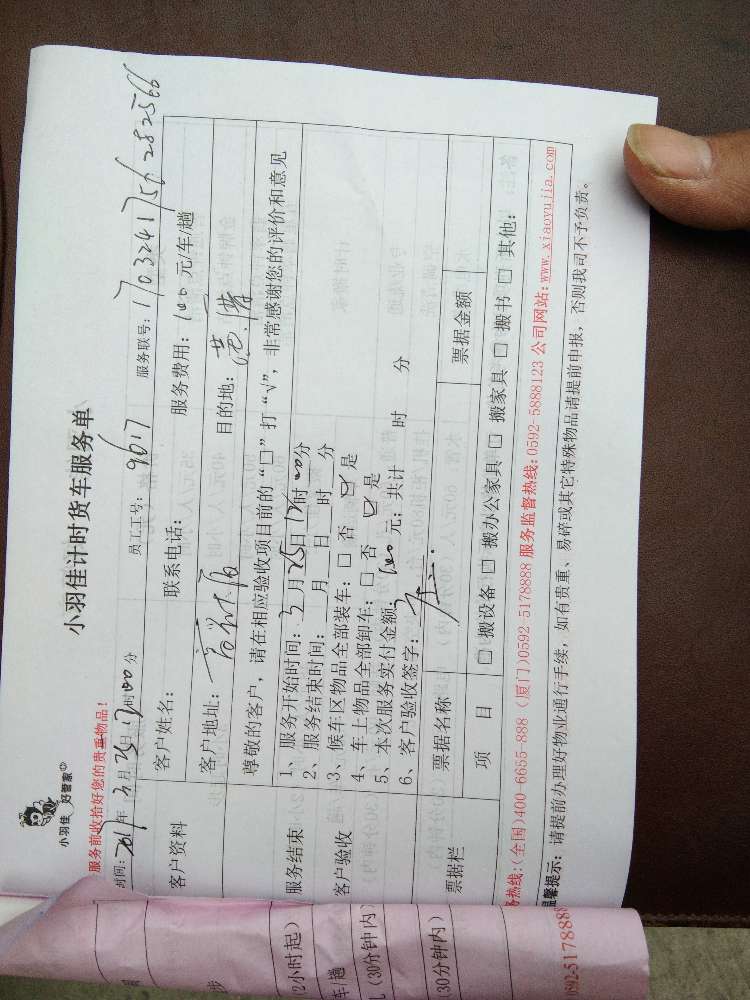 小羽佳 好管家
服务前收拾好您的贵重物品!
小羽佳计时货车服务单
时间: 2017年3月25日12时00分 员工工号: 9617 服务联号: 1703241756282566
客户资料
客户姓名: 联系电话: 服务费用: 100元/车/趟
客户地址: 目的地:
尊敬的客户,请在相应验收项目前的“口”打“√”,非常感谢您的评价和意见
服务结束
客户验收
1、服务开始时间: 3月25日12时00分
2、服务结束时间: 月 日 时 分
3、候车区物品全部装车: □ 否 ☑ 是
4、车上物品全部卸车: □ 否 ☑ 是
5、本次服务实付金额: 100元; 共计 时 分
6、客户验收签字:
票据栏
票据名称 票据金额
项 目 □ 搬设备 □ 搬办公家具 □ 搬家具 □ 搬书 □ 其他:
务热线:(全国)400-6655-888 (厦门)0592-5178888 服务监督热线:0592-5888123 公司网站:www.xiaoyujia.com
温馨提示: 请提前办理好物业通行手续, 如有贵重、易碎或其它特殊物品请提前申报, 否则我司不予负责。
步
2小时起)
车/趟
(30分钟内)
(30分钟内)
592-5178888